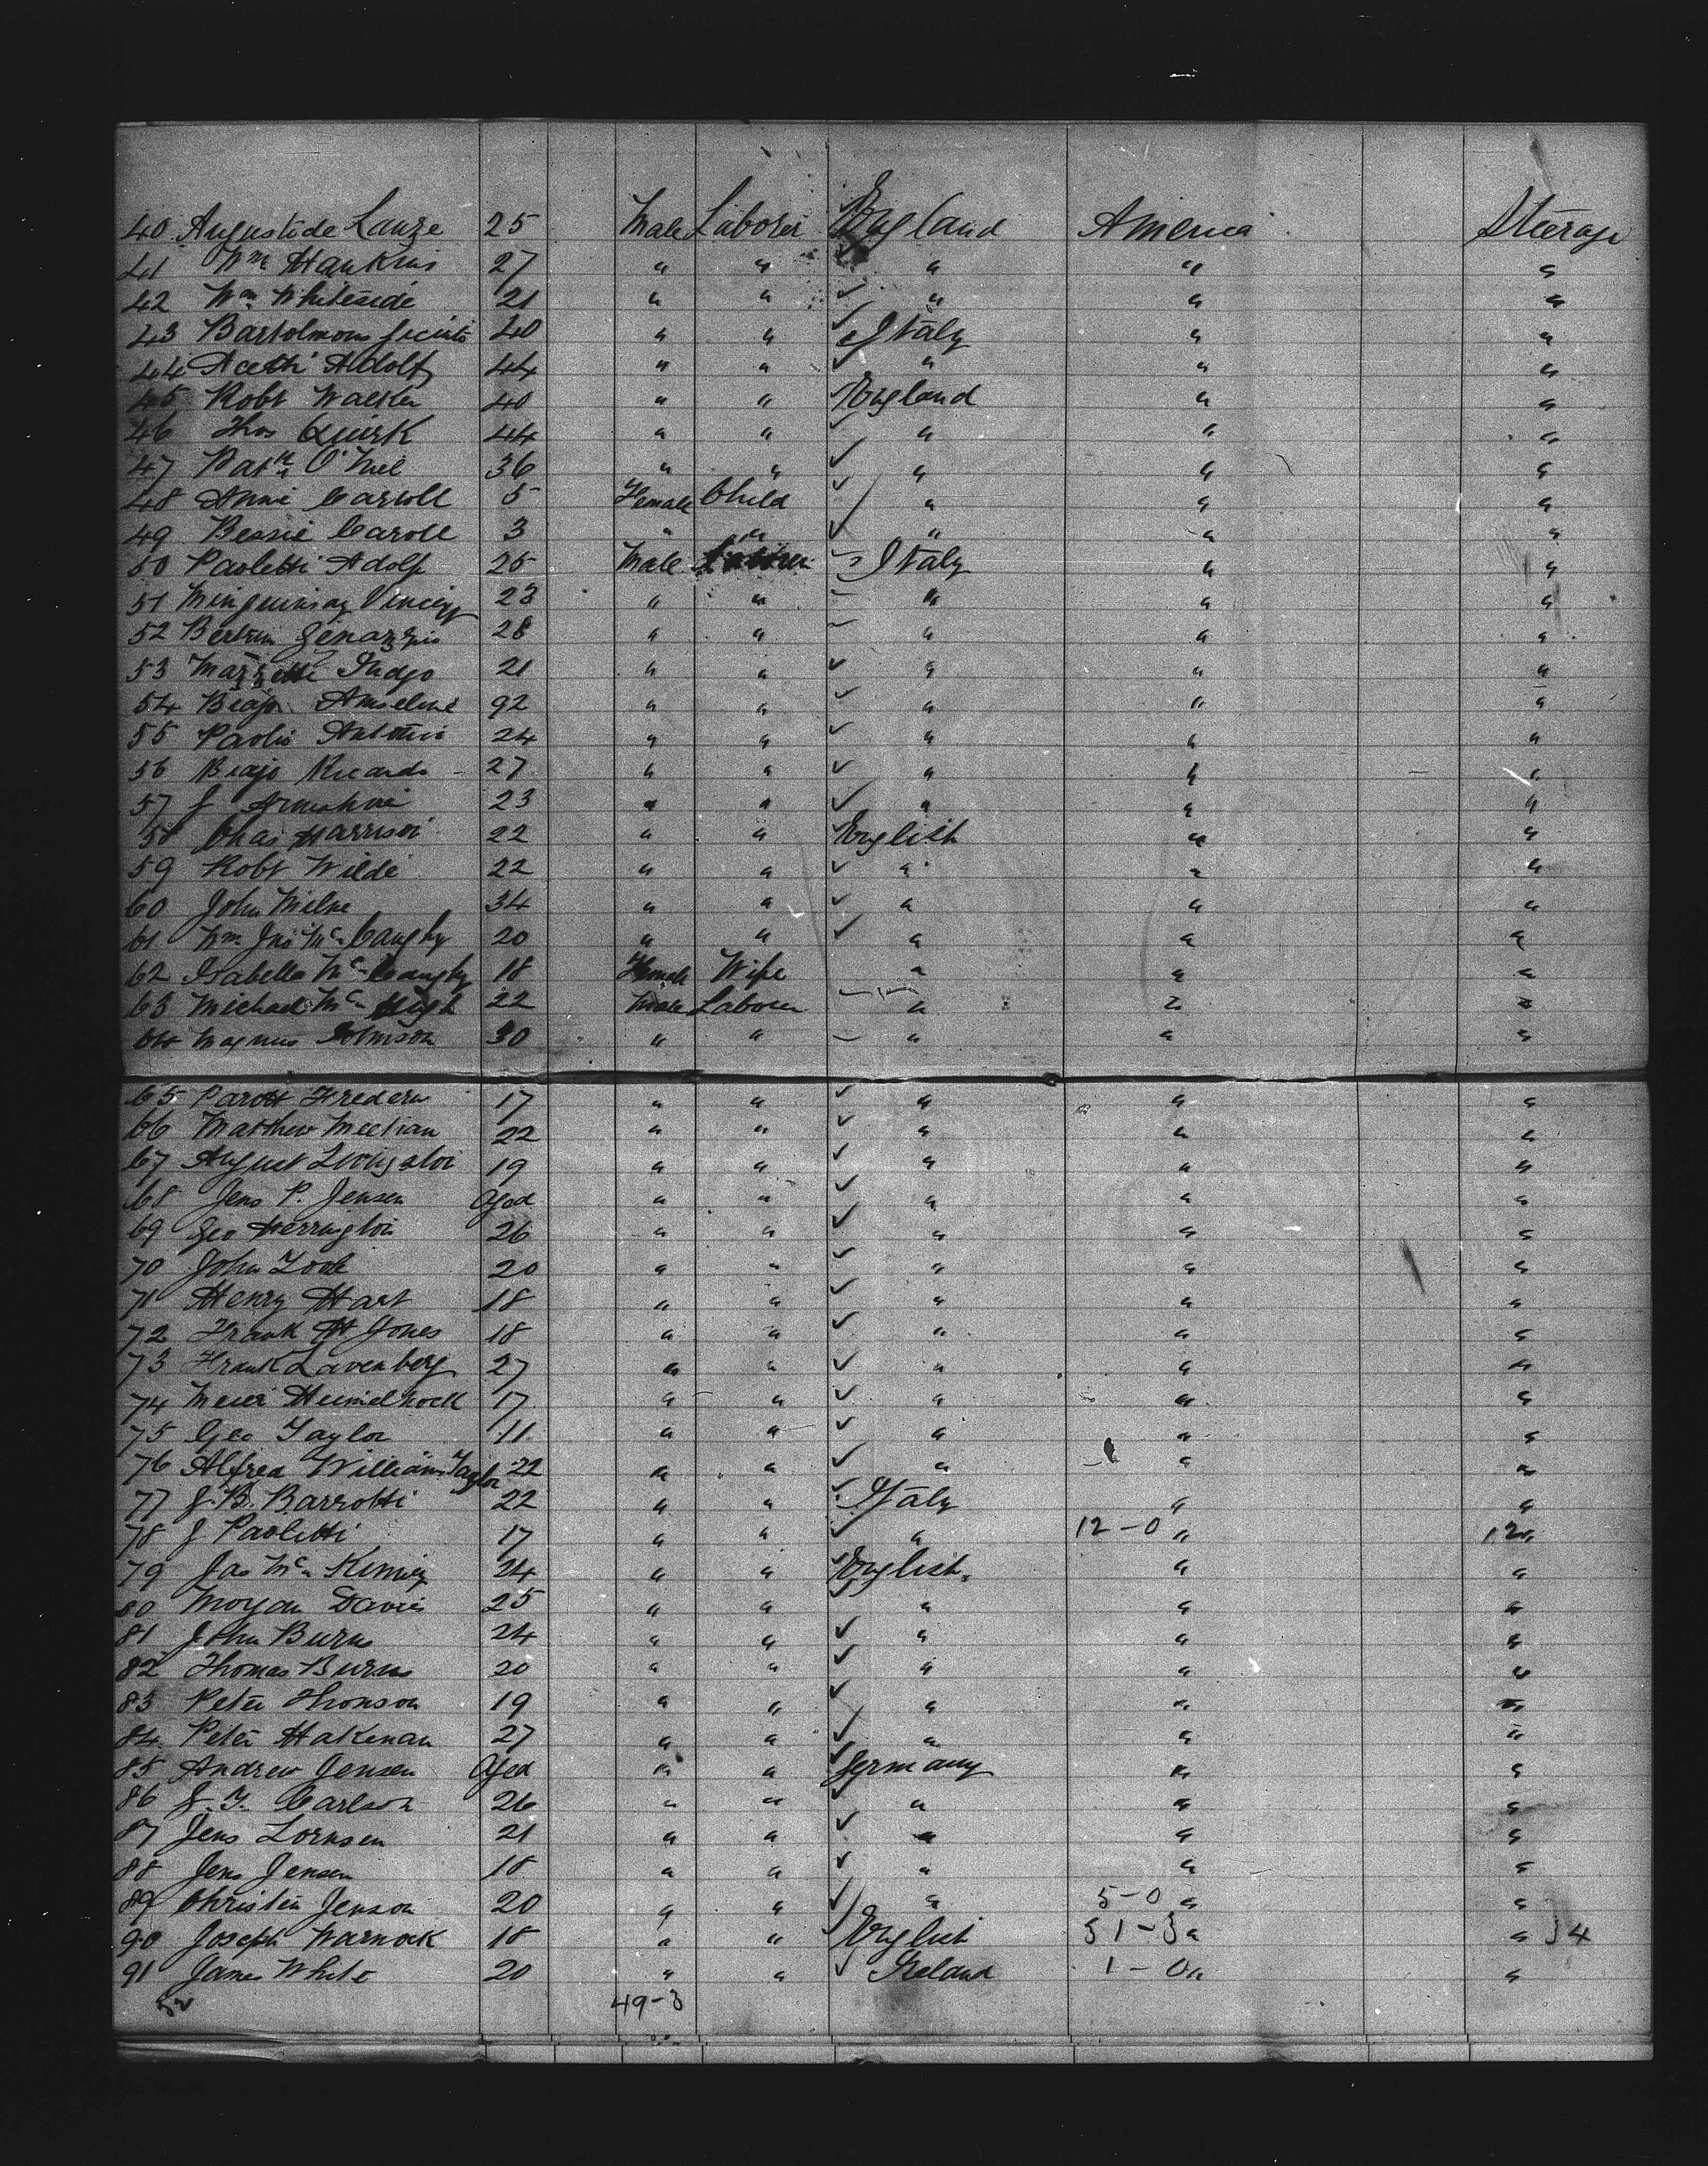 40 Augustide Lanze 25 Male Laborer England America Steerage
41 Wm Hankins 27 " " " " "
42 Wm Whiteside 21 " " " " "
43 Bartolmom 40 " " Italy " "
44 Acetti Adolf 44 " " " " "
45 Robt Walker 40 " " England " "
46 Thos Quirk 44 " " " " "
47 Patk O'Neil 36 " " " " "
48 Annie Carroll 5 Female Child " " "
49 Bessie Caroll 3 " " " " "
50 Paoletti Adolf 25 Male Laborer Italy " "
51 23 " " " " "
52 Bertini 28 " " " " "
53 Mazzetti 21 " " " " "
54 Biajo 92 " " " " "
55 Paolio Antonio 24 " " " " "
56 Biajo Ricardo 27 " " " " "
57 J 23 " " " " "
58 Chas Harrison 22 " " English " "
59 Robt Wilde 22 " " " " "
60 John Milne 34 " " " " "
61 Wm Jno McCaughy 20 " " " " "
62 Isabella McCaughy 18 Female Wife " " "
63 Michael McHugh 22 Male Laborer " " "
64 Magnus Johnson 30 " " " " "
65 Parott Frederu 17 " " " " "
66 Matthew Meehan 22 " " " " "
67 August Livingston 19 " " " " "
68 Jens P. Jensen Aged " " " " "
69 Geo Herrington 26 " " " " "
70 John 20 " " " " "
71 Henry Hart 18 " " " " "
72 Frank H Jones 18 " " " " "
73 Frank Lavenberg 27 " " " " "
74 Meier 17 " " " " "
75 Geo Taylor 11 " " " " "
76 Alfred Williams Taylor 22 " " " " "
77 J. B. Barrotti 22 " " Italy " "
78 J Paoletti 17 " " " 12-0 " 12 "
79 Jas McKinney 24 " " English. " "
80 Morgan Davies 25 " " " " "
81 John Burns 24 " " " " "
82 Thomas Burns 20 " " " " "
83 Peter Thonson 19 " " " " "
84 Peter Hakenan 27 " " " " "
85 Andrew Jensen Aged " " Germany " "
86 J. F. Carlson 26 " " " " "
87 Jens Lornsen 21 " " " " "
88 Jens Jensen 18 " " " " "
89 Christin Jenson 20 " " " 5-0 " "
90 Joseph Warnock 18 " " English 51-3 " " }4
91 James White 20 " " Ireland 1-0 " "
52 49-3